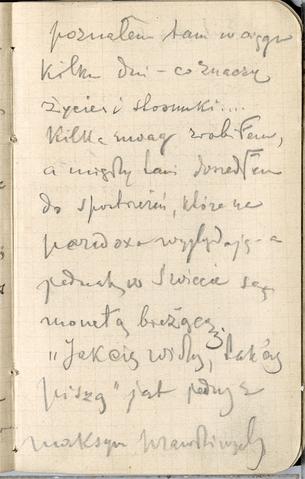 poznałem tam w ciągu
kilku dni – co znaczy
życie i stosunki...
Kilka uwag zrobiłem,
a między tem doszedłem
do spostrzeżeń, które na
paradoxa wyglądają – a
jednak w świecie są
monetą bieżącą;
"Jak cię widzą, tak cię
piszą" jest jedną z
maksym prawdziwych